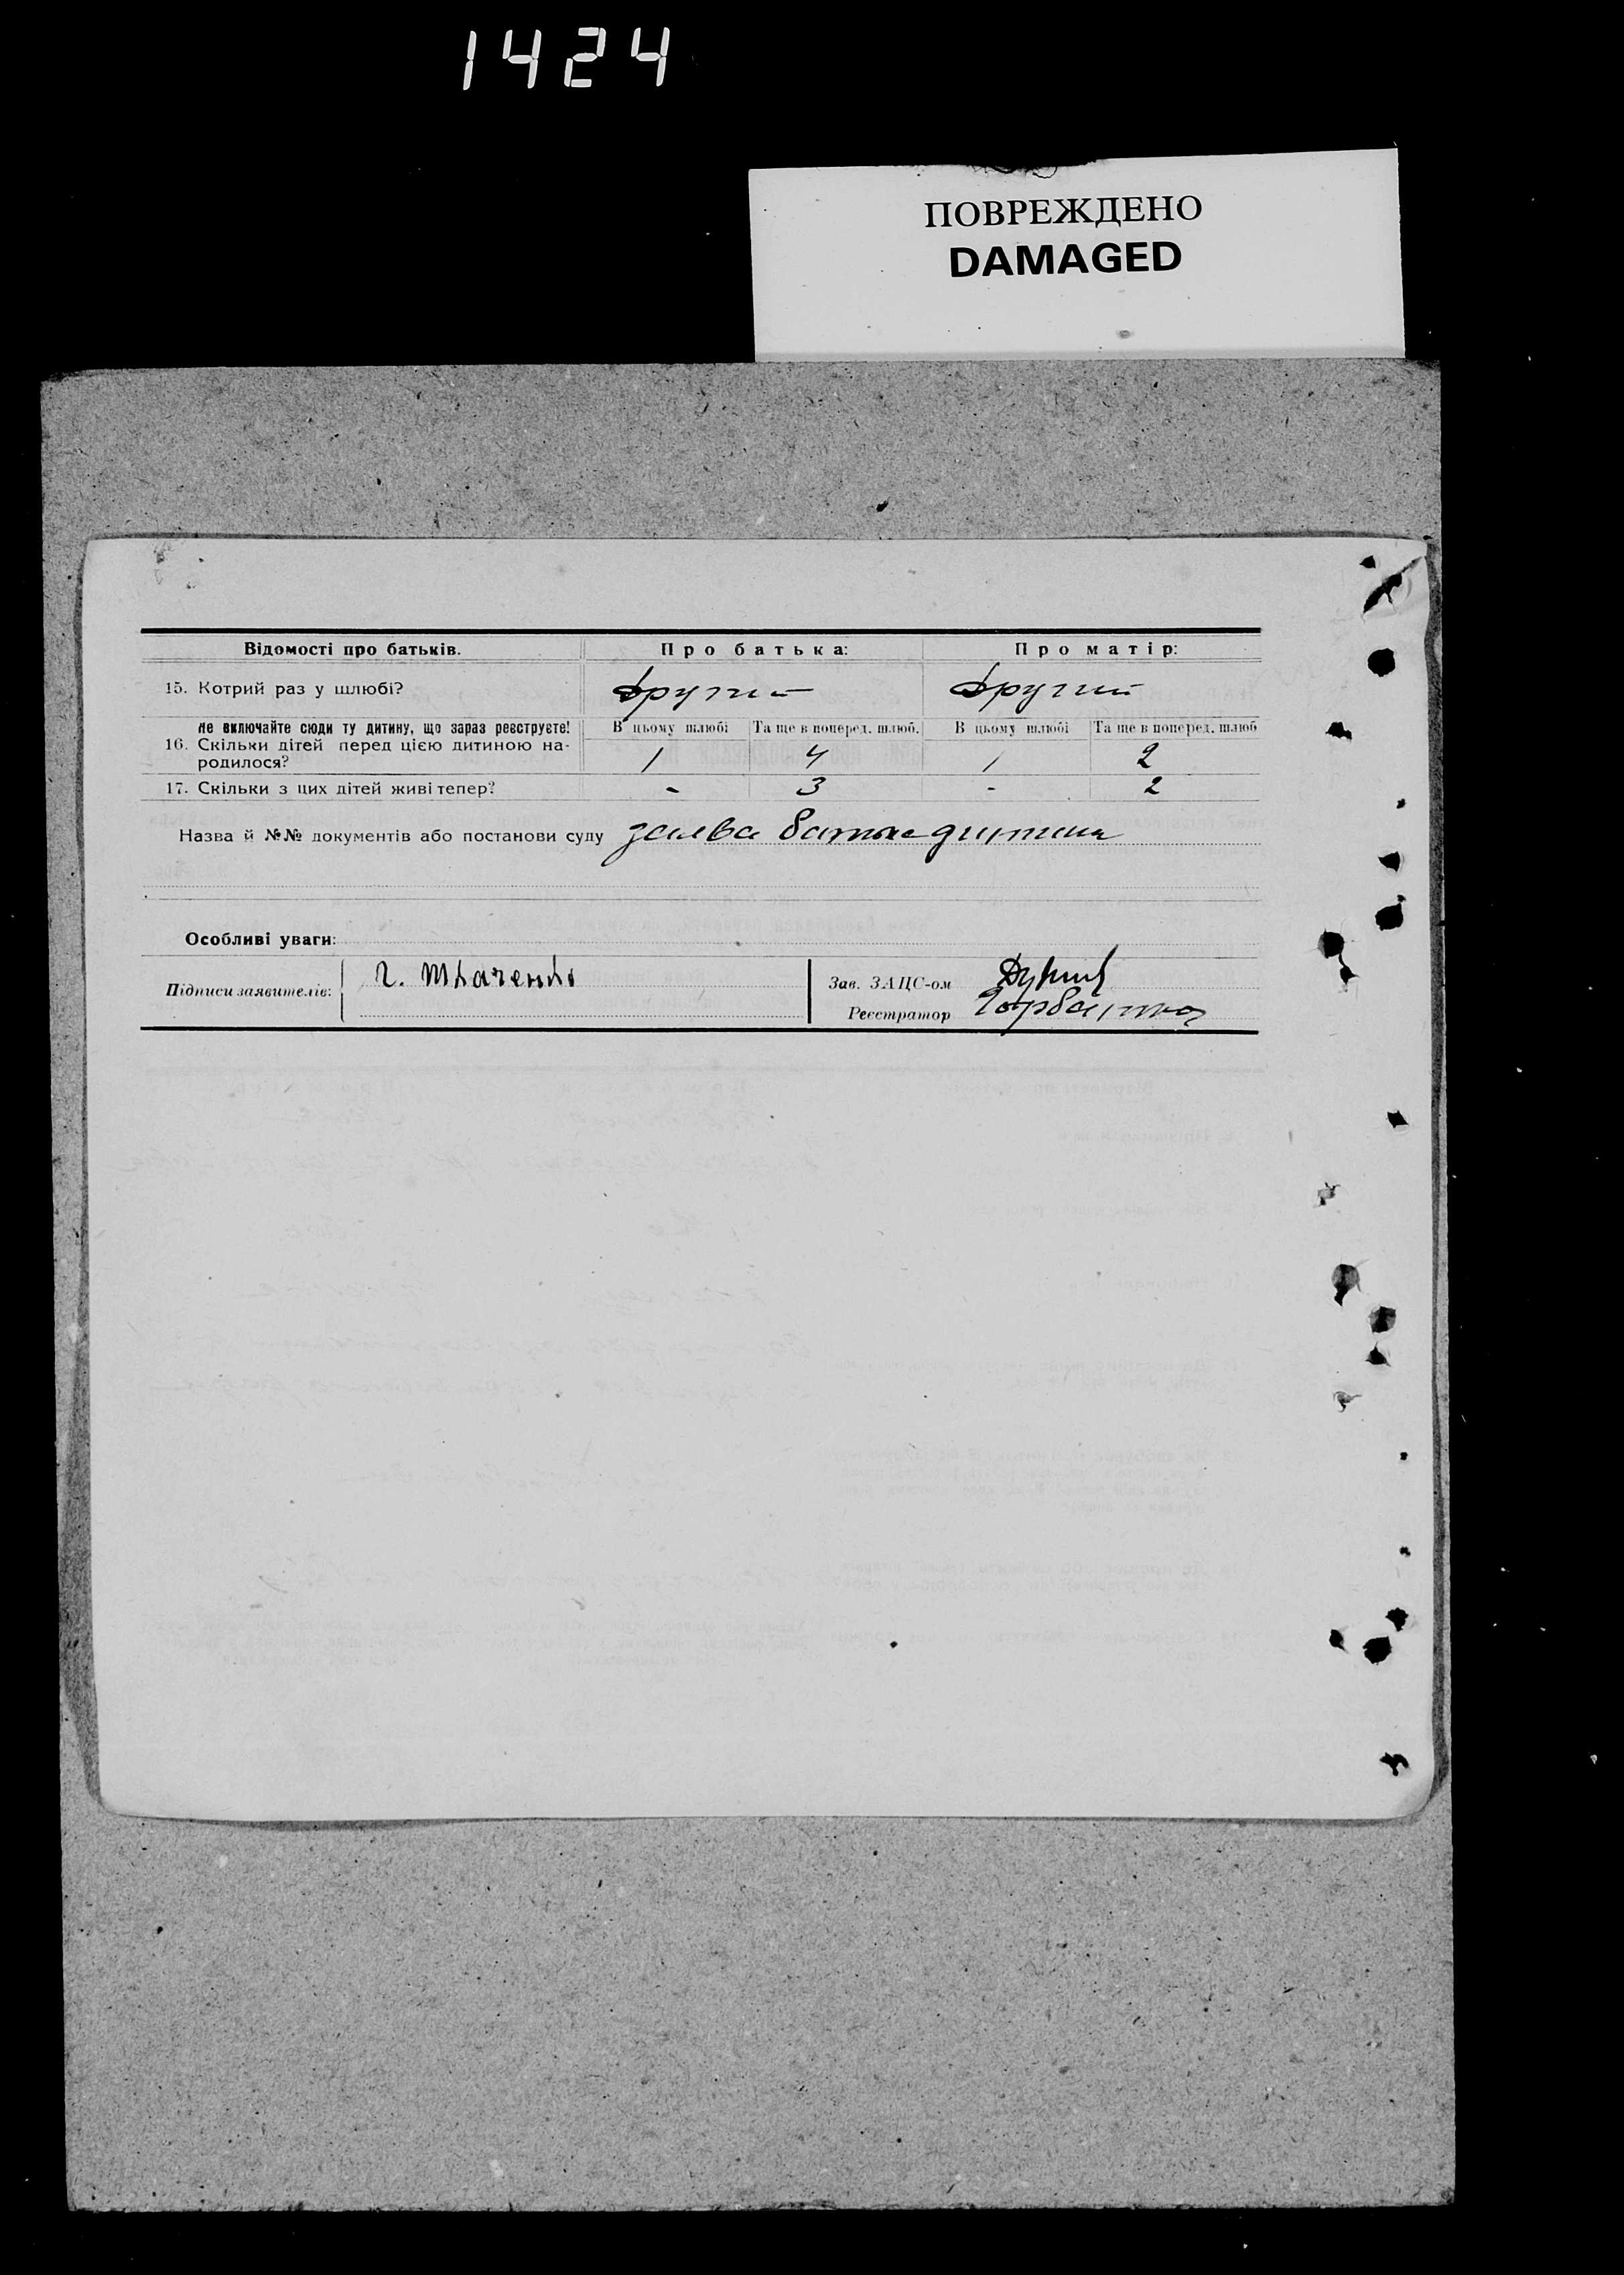 1424
ПОВРЕЖДЕНО
DAMAGED
Відомості про батьків. Про батька: Про матір:
15. Котрий раз у шлюбі? другий другий
Не включайте сюди ту дитину, що зараз реєструєте! В цьому шлюбі Та ще в поперед. шлюб. В цьому шлюбі Та ще в поперед. шлюб
16. Скільки дітей перед цією дитиною на-
родилося? 1 4 1 2
17. Скільки з цих дітей живі тепер? - 3 - 2
Назва й №№ документів або постанови суду заява батька дитини
Особливі уваги:
Підписи заявителів: Г. Ткаченко Зав. ЗАЦС-ом
Реєстратор